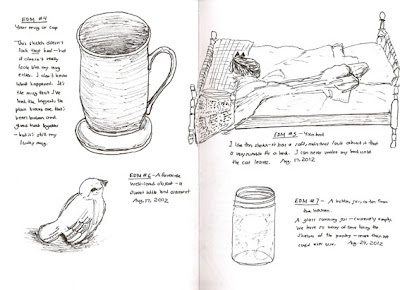 EDM #4
Your mug or cup
This sketch doesn't
look bad - but
it doesn't really
look like my mug
either. I don't know
what happened. It's
the mug that I've
had the longest; the
been broken and
glued back together
- but it's still my
EDM #5 - Your bed
I like this sketch - it has a soft, rumpled look about it that
is very suitable for a bed. I can never make my bed until
the cat leaves. Aug. 17, 2012
EDM #6 - A favorite
well-loved object - a
sweet little bird ornament
Aug. 17, 2012
EDM #7 - A bottle, jar or tin from
the kitchen.
A glass canning jar - currently empty.
We have so many of these lining the
shelves of the pantry - more than we
could ever use. Aug. 24, 2012